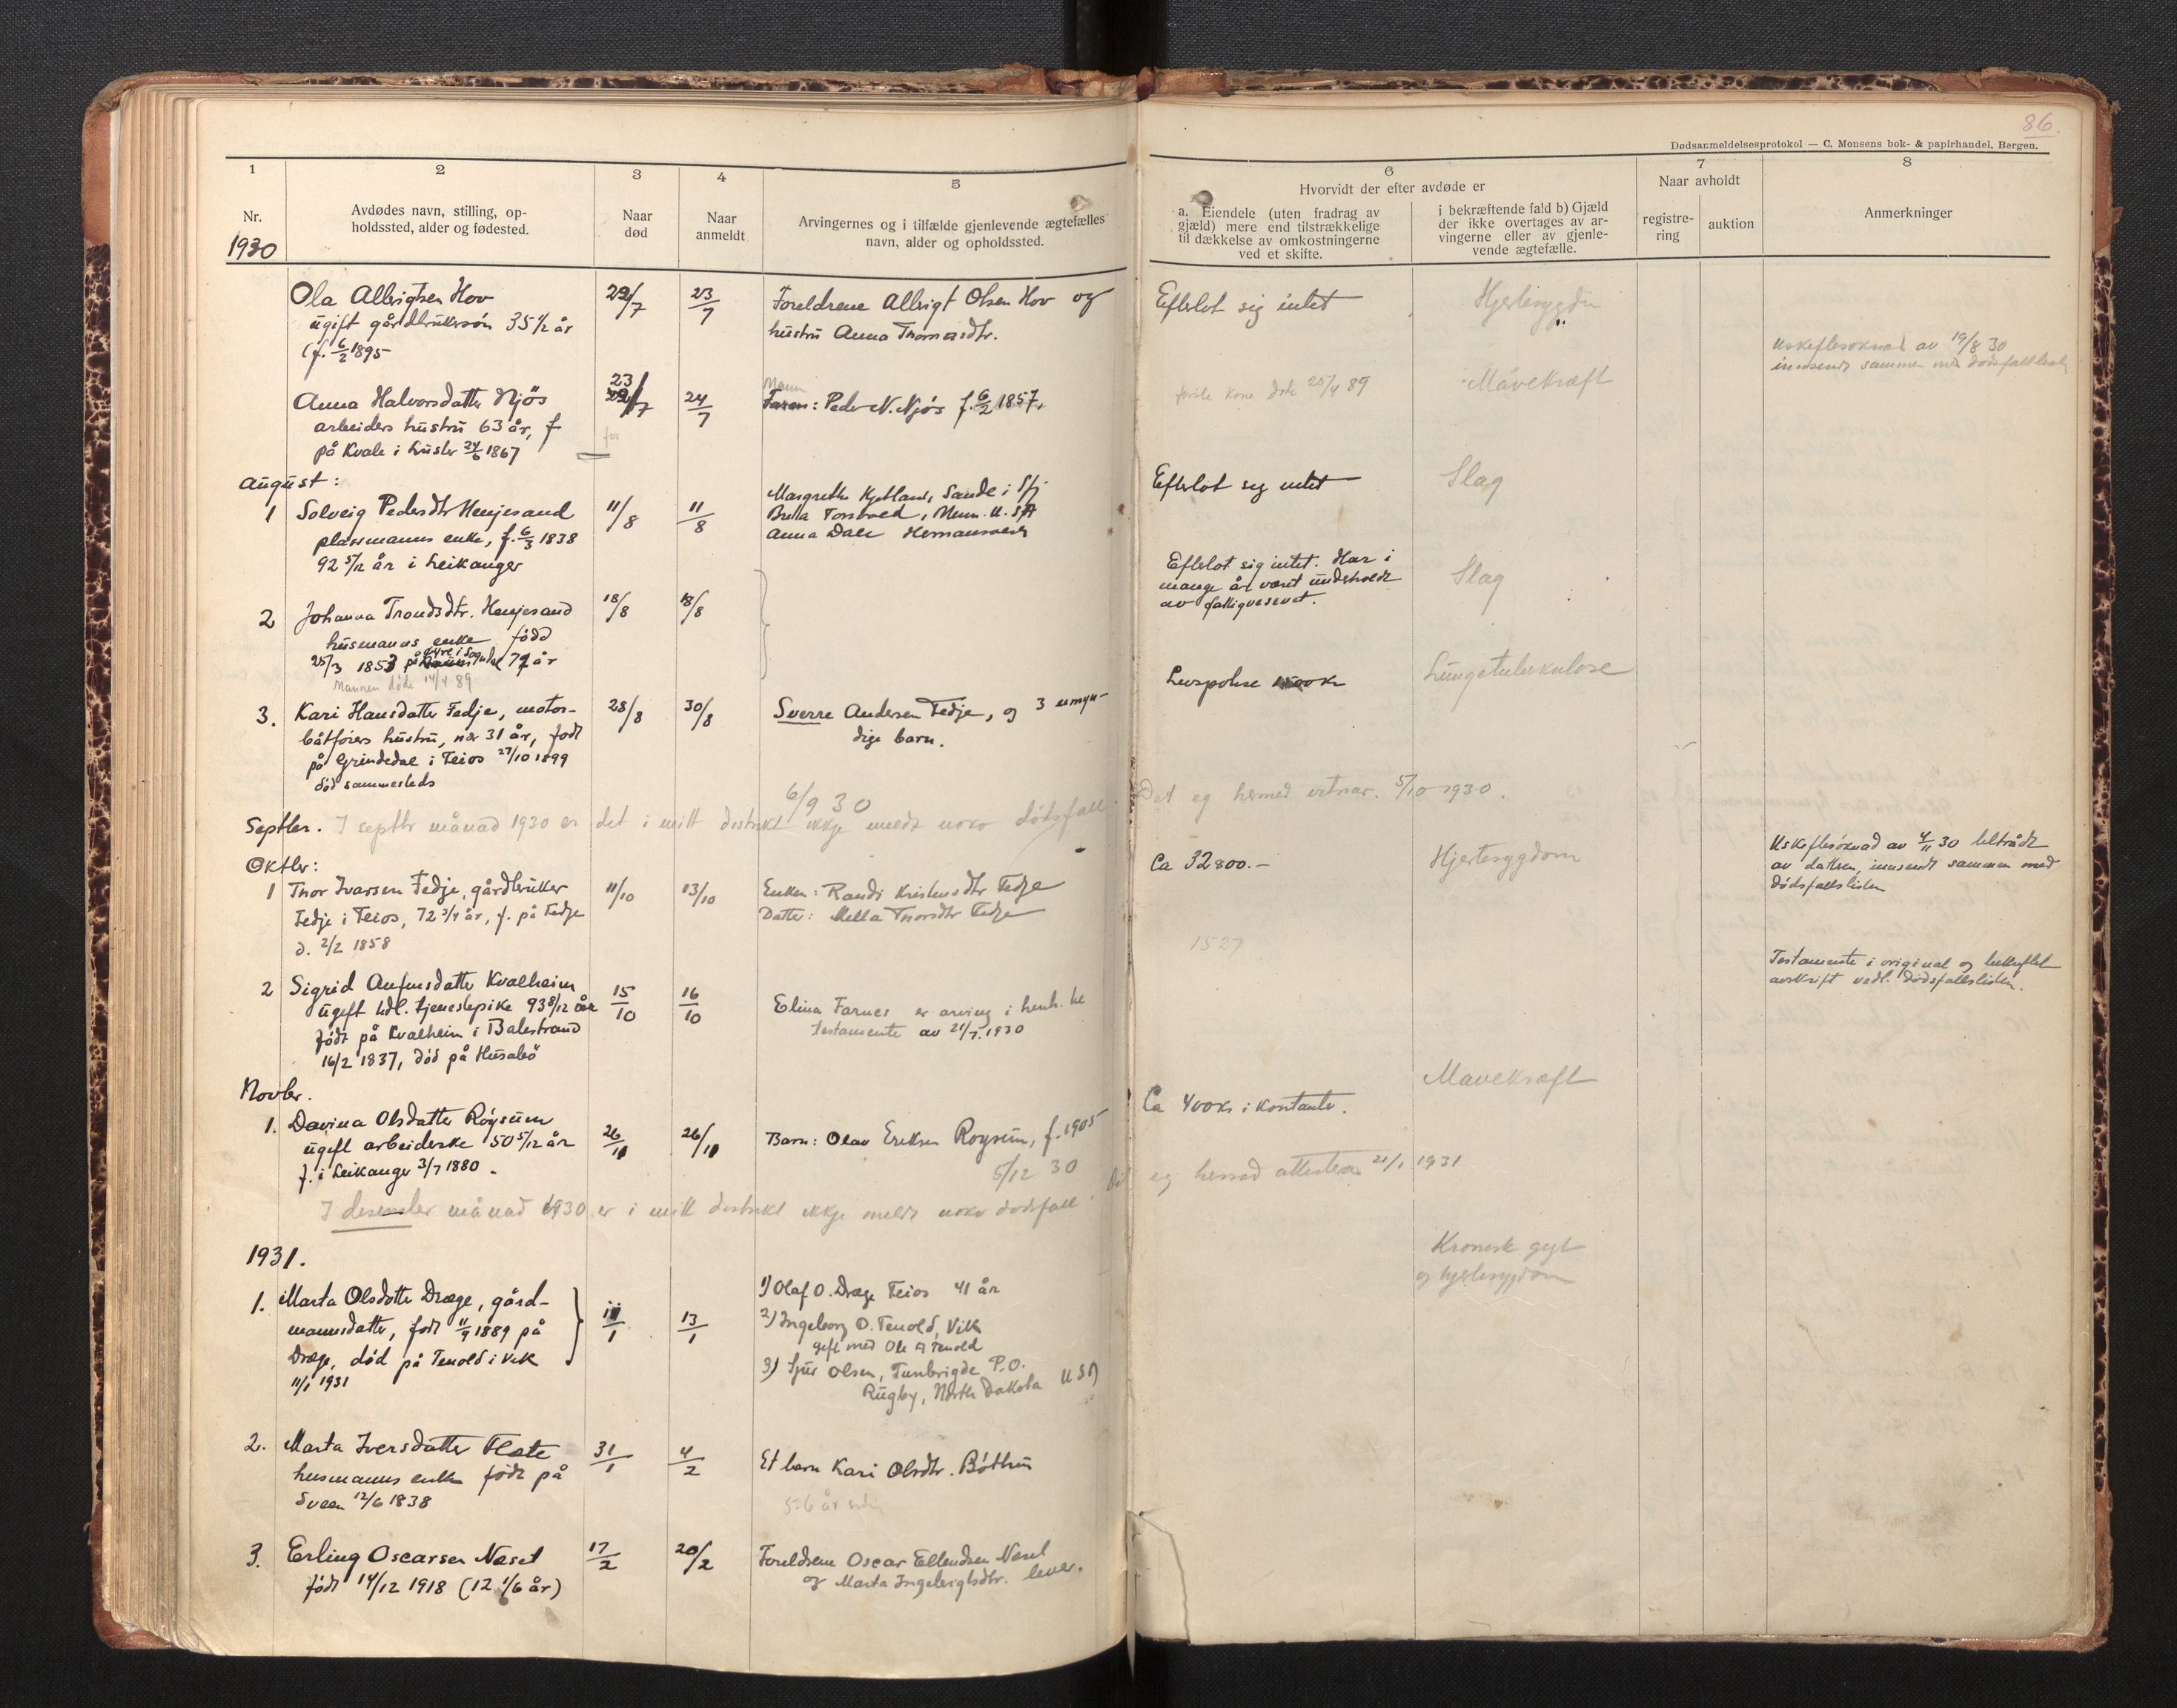 86.
Dødsanmeldelsesprotokol — C. Monsens bok- & papirhandel, Bergen.
1
2
3
4
5
6
7
8
Nr.
Avdødes navn, stilling, op-
holdssted, alder og fødested.
Naar
død
Naar
anmeldt
Arvingernes og i tilfælde gjenlevende ægtefælles
navn, alder og opholdssted.
Hvorvidt der efter avdøde er
a. Eiendele (uten fradrag av
gjæld) mere end tilstrækkelige
til dækkelse av omkostningerne
ved et skifte.
i bekræftende fald b) Gjæld
der ikke overtages av ar-
vingerne eller av gjenle-
vende ægtefælle.
Naar avholdt
registre-
ring
auktion
Anmerkninger
1930
Ola Albrigtsen Hov
ugift gårdbrukersøn 35 1/2 år
(f. 6/2 1895
22/7
23/7
Foreldrene Albrigt Olsen Hov og
hustru Anna Thomasdtr.
Efterlot sig intet
Hjertesygdom
Anna Halvorsdatter Njøs
arbeiders hustru 63 år, f
på Kvale i Luster 24/6 1867
23/7
24/7
Mann
Faren: Peder N. Njøs f. 6/2 1857.
første kone død 25/4 89
Mavekræft
Uskiftesøknad av 19/8 30
innsendt sammen med dødsfallliste
August:
1 Solveig Pedersdtr Henjesand
plassmanns enke, f. 6/3 1838
92 5/12 år i Leikanger
11/8
11/8
Margrethe Kjetland, Sande i Sfj
Anna Dale Hermansverk
Efterlot sig intet
Slag
2 Johanna Trondsdtr. Henjesand
husmanns enke född
25/3 1853 på Øyre i Sogndal 77 år
Mannen døde 14/4 89
18/8
18/8
Efterlot sig intet. Har i
mange år været underholdt
av fattigvesenet.
Slag
3. Kari Hansdatter Fedje, motor-
båtførers hustru, nær 31 år, født
på Grindedal i Feios 27/10 1899
død sammesteds
28/8
30/8
Sverre Andersen Fedje, og 3 umyn-
dige barn.
Lungetuberkulose
6/9 30
Septber. I septbr månad 1930 er det i mitt distrikt ikkje meldt noko dødsfall. Det eg hermed vitnar. 5/10 1930.
Oktber:
1 Thor Ivarsen Fedje, gårdbruker
Fedje i Feios, 72 3/4 år, f. på Fedje
d. 2/2 1858
11/10
13/10
Enken: Randi Kristensdtr Fedje
Datter: Mella Thorsdtr Fedje
Ca 32800.-
Hjertesygdom
Uskiftesøknad av 4/11 30 tiltrådt
av datteren, innsendt sammen med
dødsfallslisten
1527
2 Sigrid Anfinsdatter Kvalheim
ugift fhv. tjenestepike 93 8/12 år
født på Kvalheim i Balestrand
16/2 1837, død på Husabø
15/10
16/10
Elina Farnes er arving i henh. til
testamente av 21/7. 1930
Testamente i original og bekreftet
avskrift vedl. dødsfallslisten.
Novbr.
1. Davina Olsdatter Røysum
ugift arbeiderske 50 5/12 år
f. i Leikanger 3/7 1880.
26/11
26/11
Barn: Olav Eriksen Røysum, f. 1905
Ca 400 kr i kontanter.
Mavekræft
5/12 30
I desember månad 1930 er i mitt distrikt ikkje meldt noko dødsfall. Det eg hermed attesterar 21/1 1931
1931.
1. Marta Olsdotter Dræge, gård-
mannsdatter, født 11/9 1889 på
Dræge, død på Tenold i Vik
11/1 1931
11/1
13/1
1) Olaf O. Dræge Feios 41 år
2) Ingeborg O. Tenold, Vik
gift med Ole A Tenold
3) Sjur Olsen, Tunbrigde P.O.
Rugby, North Dakota USA
Kronisk gigt
og hjertesygdom
2. Marta Iversdatter Flete
husmanns enke født på
Sveen 12/6 1838
31/1
4/2
Et barn Kari Olsdtr. Bøthun
5-6 år siden
3. Erling Oscarsen Neset
født 14/12 1918 (12 1/6 år)
17/2
20/2
Foreldrene Oscar Ellendsen Neset
og Marta Ingebrigtsdtr. lever.